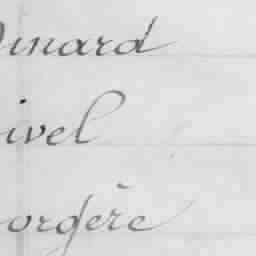 inard
ivel
orgère